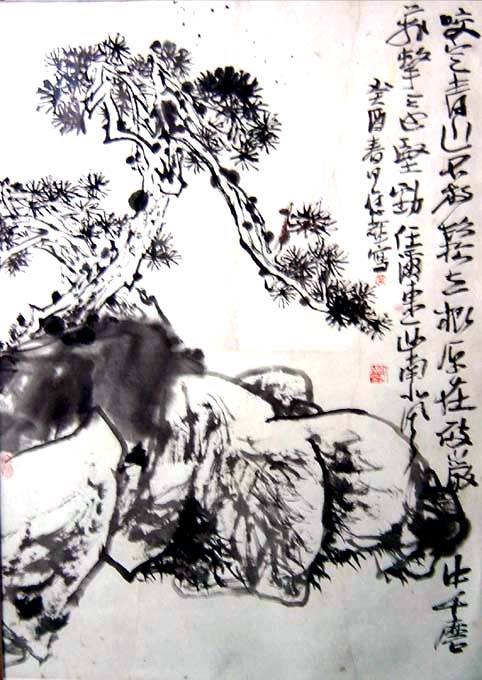 咬定青山不放鬆立根原在破巖中千磨
萬擊还堅勁任爾東西南北风
癸酉春日寫